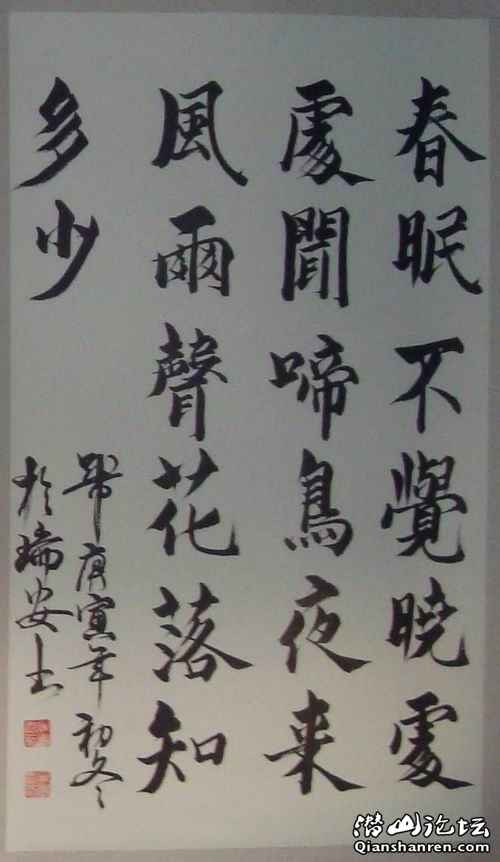 春眠不覺曉處
處聞啼鳥夜来
風雨聲花落知
多少
庚寅年初冬
於瑞安書
潜山论坛
Qianshanren.com